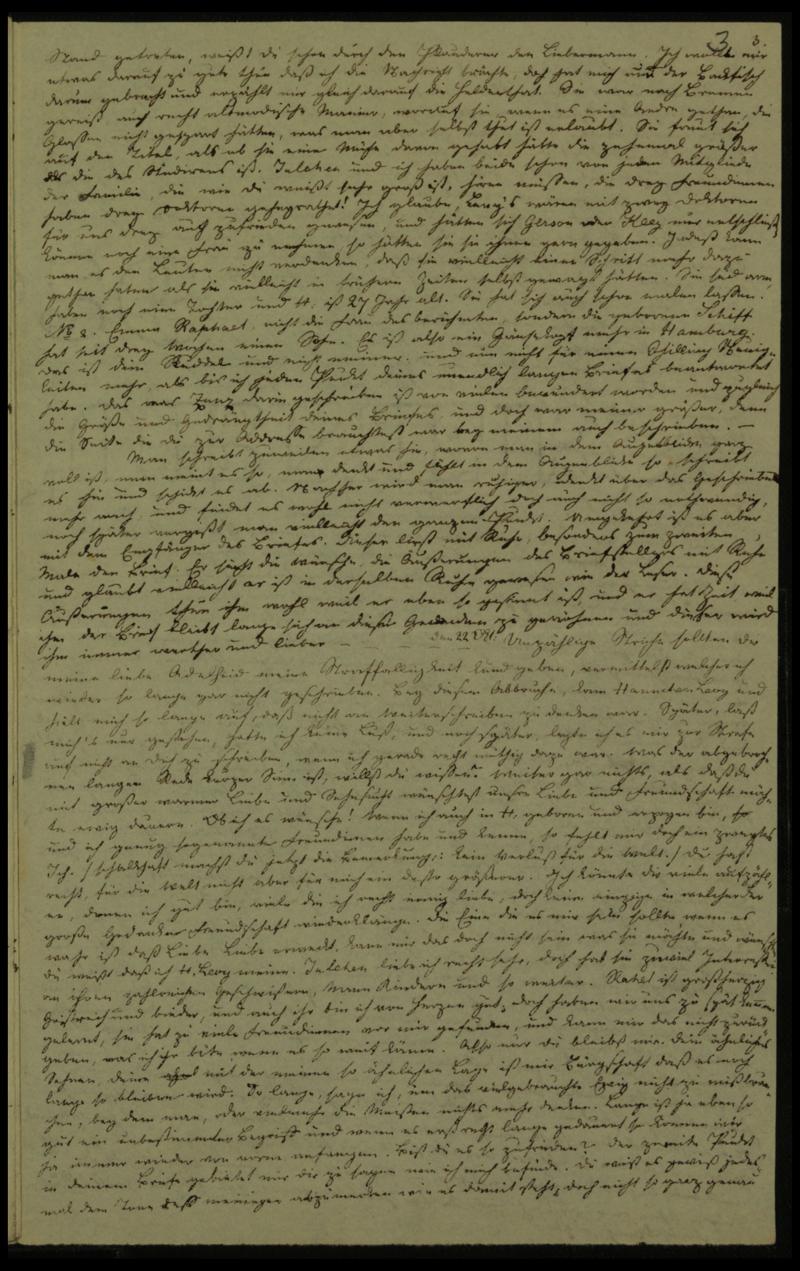 3 3.
Stand getreten, weißt du schon durch den Plauderer den Liebermann. Ich wollte mir
etwas darauf zu gute thun daß ich die Nachricht brächte, doch hat mich der Backfisch
darum gebracht und erzählt mir gleich darauf die Heldenthat. Sie war nach Bremen
gereist auch recht altmodische Manier, worauf sie, wenn es eine Andre gethan, die
Glossen nicht gespart hätten, was man aber selbst thut ist erlaubt. Sie freut sich
auf den Titel, als ob sie eine Mühe davon gehabt hätte die zehenmal größer
als die des Studierens ist. Julchen und ich haben beide schon von jedem Mitgliede
der Familie, die wie du weißt sehr groß ist, hören müssen, die drey Freundinnen
haben drey Doktoren geheyrathet! Ich glaube, wären mit zwey Doktoren
für uns drey auch zufrieden gewesen, und hätten sich Gerson oder nur entschließen
können noch eine Frau zu nehmen, so hätten sie sie ihnen gern gegeben. Indeß kann
man es den Leuten nicht verdenken, daß sie vielleicht einen Schritt mehr dazu
gethan haben als sie vielleicht in frühern Zeiten selbst gewagt hätten. Sie sind arm,
haben noch eine Tochter und H. ist 27 Jahr alt. Sie hat sich auch schon malen lassen.
No 2. Emma Raphael, nicht die Frau des berühmten, sondern die geborene Schiff
hat seit drey Wochen einen Sohn. Es ist also ein Gänsekopf mehr in Hamburg.
Das ist dein und nicht meiner. und nun nicht für einen Schilling Neuig-
keiten mehr, als bis ich jeden Punkt deines unendlich langen Briefes beantwortet
habe. Das was darin geschrieben ist von vielen bewundert worden und zugleich
die Größe und Gedrängtheit deines Briefes und doch war meiner größer, denn
die Seite die du zur Addresse brauchtest war bey meinem auch beschrieben. —
Man schreibt zuweilen etwas hin, wovon man in dem Augenblicke ganz
voll ist, man meint es so, man denkt und fühlt in dem Augenblicke so schreibt
es hin und schickt es ab. Nachher wird man ruhiger, denkt über das Geschriebene
mehr nach und findet es wohl nicht verwerflich doch auch nicht so nothwendig,
noch später vergißt man vielleicht den ganzen Punkt. Umgekehrt ist es aber
mit dem Empfänger des Briefes. Dieser liest mit Ruhe, besonders zum zweiten
Male den Brief. Er sieht die Wünsche, die Äußerungen des Briefstellers mit Ruhe
und glaubt vielleicht er ist in derselben Ruhe gewesen wie der Leser. Diese
Äußerungen thun ihm wohl weil er eben so gesinnt ist, und er hat Zeit weil
ihm der Brief bleibt lange sich an diese Gedanken zu gewöhnen und dieser wird
ihm immer werther und lieber — — — den 22 Unzählige Striche sollten dir
meine liebe Adelheid meine Straffälligkeit kund geben, vermittelst welcher ich
wieder so lange gar nicht geschrieben. Bey diesem Abbruche, kam Hannchen Levy und
hielt mich so lange auf, daß nicht am Weiterschreiben zu denken war. Später, laß
mich's nur gestehen, hatte ich keine Lust, und noch später, legte ich es mir zur Strafe
auf nicht an Dich zu schreiben, wenn ich gerade recht müthig dazu war. Was der abgebroche-
nen langen Rede kurzer Sinn ist, willst du wissen? Weiter gar nichts, als daß du
mit großer warmer Liebe und Sehnsucht wünschtest unsre Liebe und Freundschaft möch-
te ewig dauern. Ob ich es wünsche! Wenn ich auch in H. geboren und erzogen bin,
und ich genug sogenannte Freundinnen habe und kenne, so fehlt mir doch ein zweytes
Ich. / schalkhaft machst du jetzt die Bemerkung: kein Verlust für die Welt. / Du hast
recht, für die Welt nicht aber für mich ein desto größerer. Ich könnte dir viele aufzähl-
en, denen ich gut bin, viele die ich recht innig liebe, doch keine einzige in welcher der
große Gedanke Freundschaft wiederklänge. Die Eine die es mir seyn sollte wenn es
wahr ist daß Liebe Liebe erweckt, kann mir das doch nicht sein was sie möchte und wünscht
du weißt daß ich H. Levy meine. Julchen liebe ich recht sehr, doch hat sie zuviel Interesse
an ihren zahlreichen Geschwistern, deren Kindern und so weiter. Rahel ist großherzig
Geistreich und bieder, und auch ihr bin ich von Herzen gut, doch haben wir uns zu spät kennen
gelernt, sie hat zu viele Freundinnen vor mir gefunden, und kann mir das nicht zurück
geben, was ich ihr böte wenn es so weit käme. Also nur du bleibst mir. Dein ähnliches
Sehnen, deine mit der meinen so ähnlichen Lage ist mir Bürgschaft daß es noch
lange so bleiben wird. So lange, sage ich, um das vielgebrauchte Ewig nicht zu mißbrau-
chen, bey dem man, oder vielmehr die Meisten nichts mehr denken. Lange ist ja eben so
gut ein unbestimmter Begriff und wenn es erst recht lange gedauert so können wir
ja immer wieder von vorne anfangen. Bist du es so zufrieden? Der zweite Punkt
in deinem Briefe gebietet mir dir zu sagen wie ich mich befinde. Du weißt es gewiß jedes-
mal dem Tone des meinigen abzumerken wie es damit steht, doch nicht so ganz genau